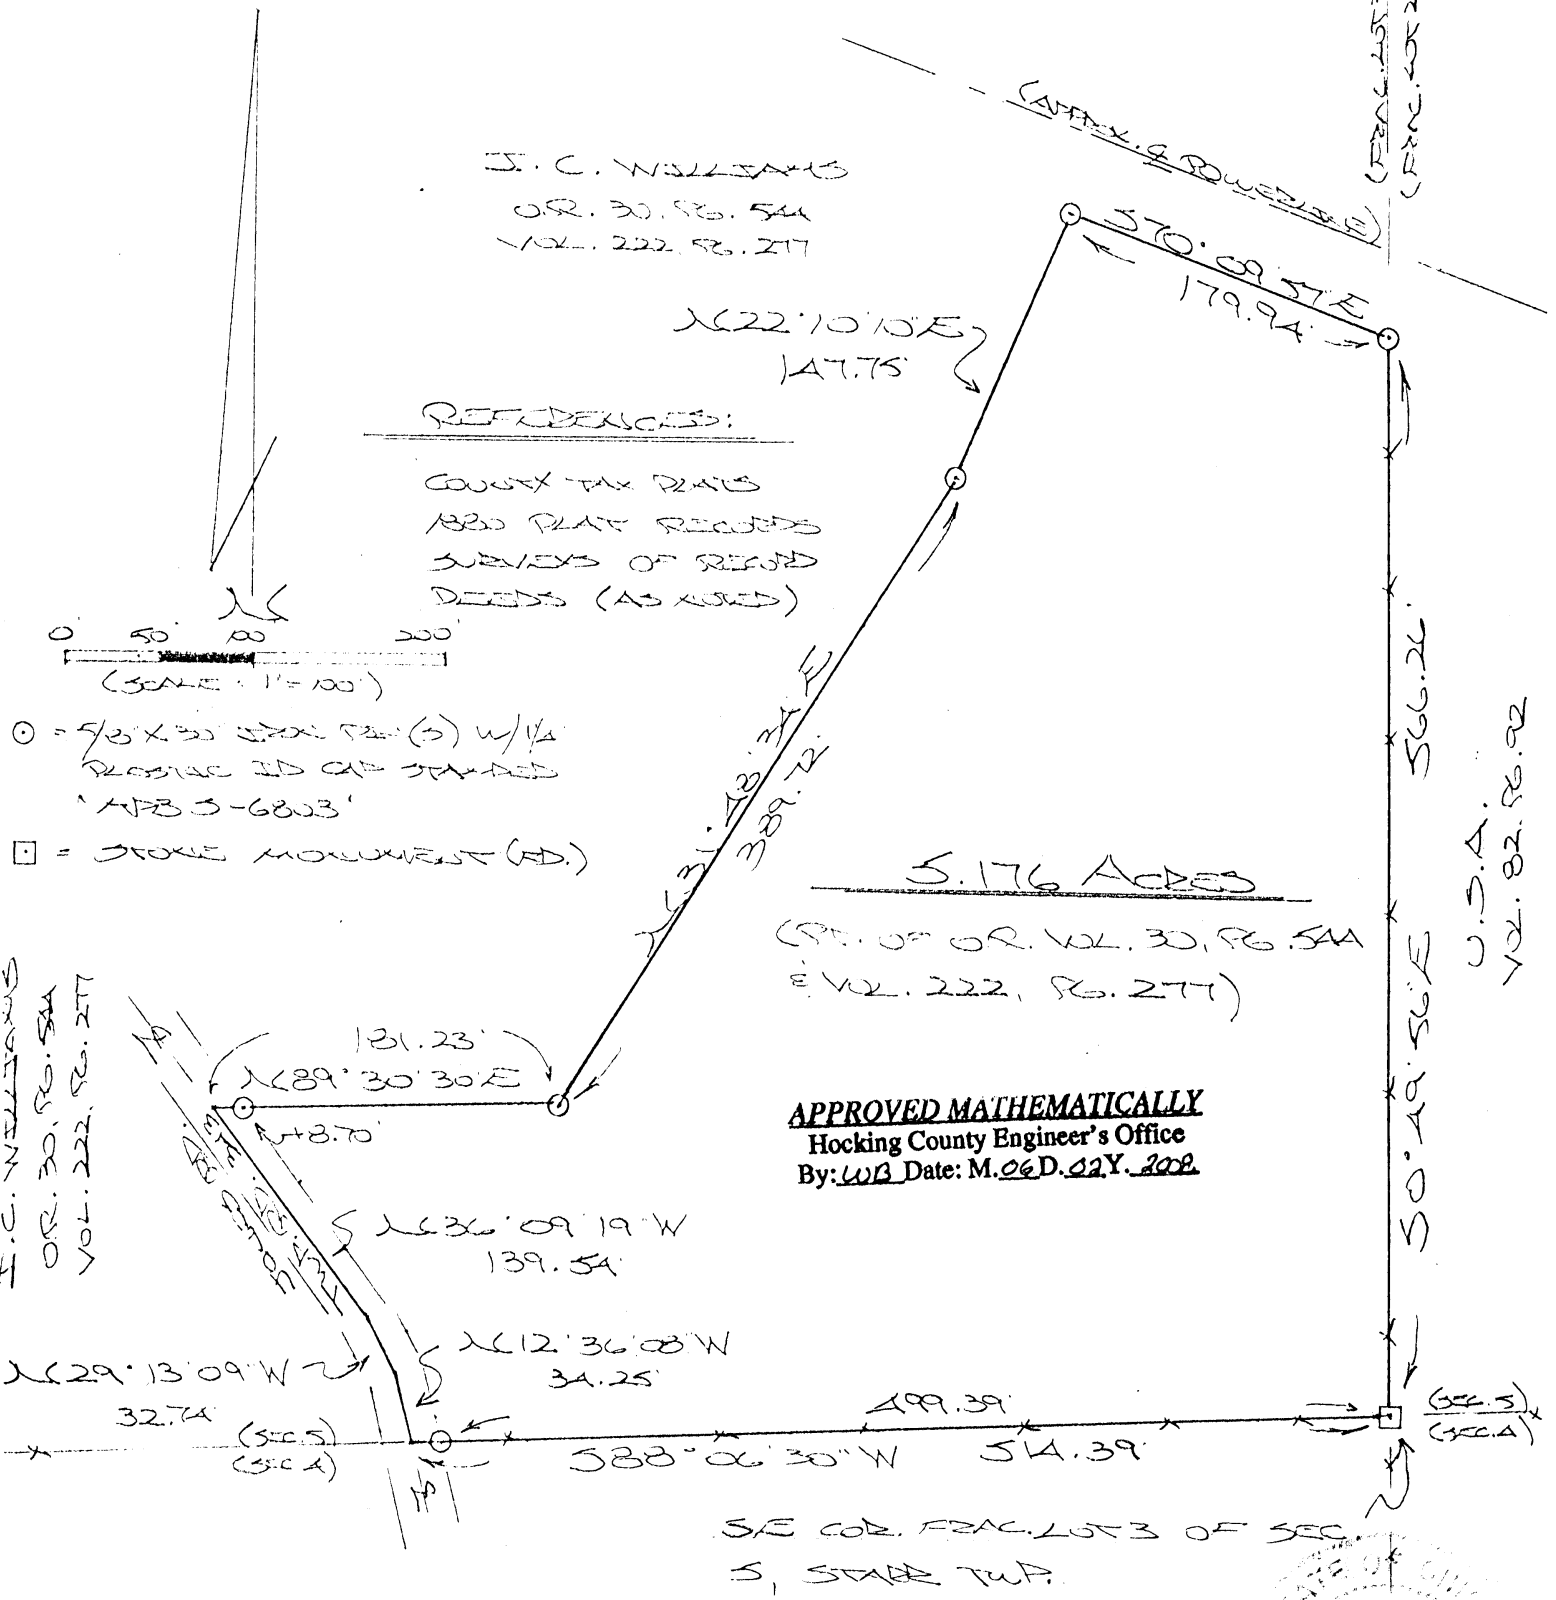 (APPRX. ℄ POWERLINE)
(FRAC. LOT
(FRAC. LOT 2
I. C. WILLIAMS
O.R. 30, PG. 544
VOL. 222, PG. 277
S70°09'57"E
179.94'
N22°10'10"E
147.75'
REFERENCES:
COUNTY TAX PLATS
1880 PLAT RECORDS
SURVEYS OF RECORD
DEEDS (AS NOTED)
N
0' 50' 100' 200'
(SCALE: 1"=100')
⊙ = 5/8" X 30" IRON PIN (S) W/ 1 1/4"
PLASTIC ID CAP STAMPED
"APB S-6803"
⊡ = STONE MONUMENT (FD.)
N31°48'34"E
389.72'
566.26'
S0°49'56"E
U.S.A.
VOL. 82, PG. 92
5.176 ACRES
(PT. OF O.R. VOL. 30, PG. 544
& VOL. 222, PG. 277)
I.C. WILLIAMS
O.R. 30, PG. 544
VOL. 222, PG. 277
181.23'
N89°30'30"E
18.70'
APPROVED MATHEMATICALLY
Hocking County Engineer's Office
By: WB Date: M. 06 D. 02 Y. 2008
N36°09'19"W
139.54'
N12°36'08"W
34.25'
N29°13'09"W
32.74'
(SEC. 5)
(SEC. 4)
499.39'
S88°06'30"W 514.39'
(SEC. 5)
(SEC. 4)
SE COR. FRAC. LOT 3 OF SEC.
5, STARR TWP.